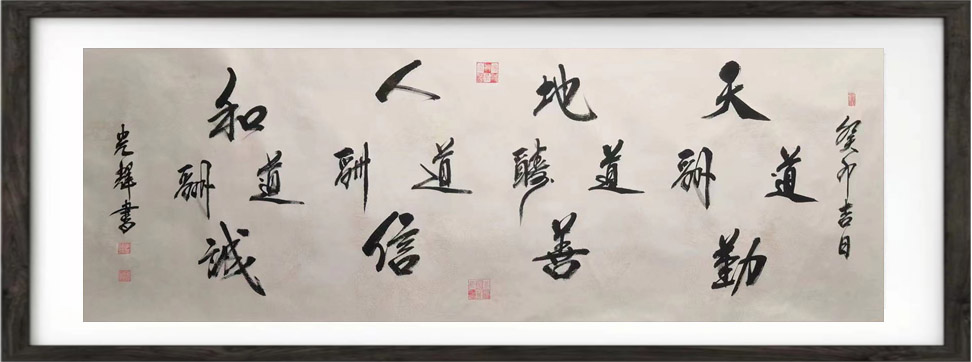 癸卯吉日
天道酬勤
地道酬善
人道酬信
和道酬誠
光輝書